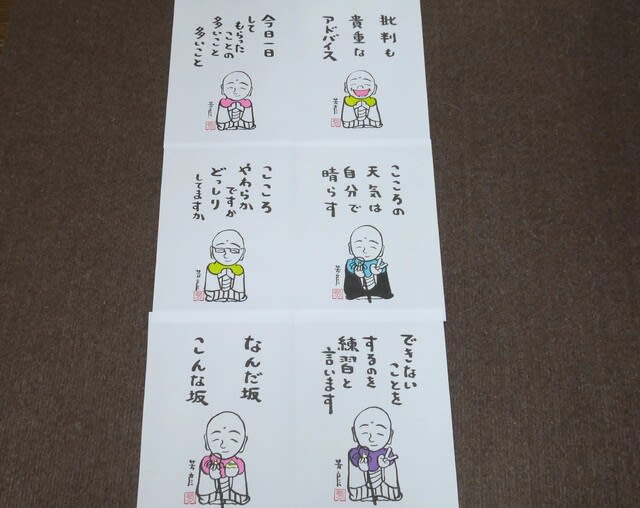 批判も
貴重な
アドバイス
今日一日
して
もらった
ことの
多いこと
多いこと
こころの
天気は
自分で
晴らす
こころ
やわらか
ですか
どっしり
してますか
できない
ことを
するのを
練習と
言います
なんだ坂
こんな坂